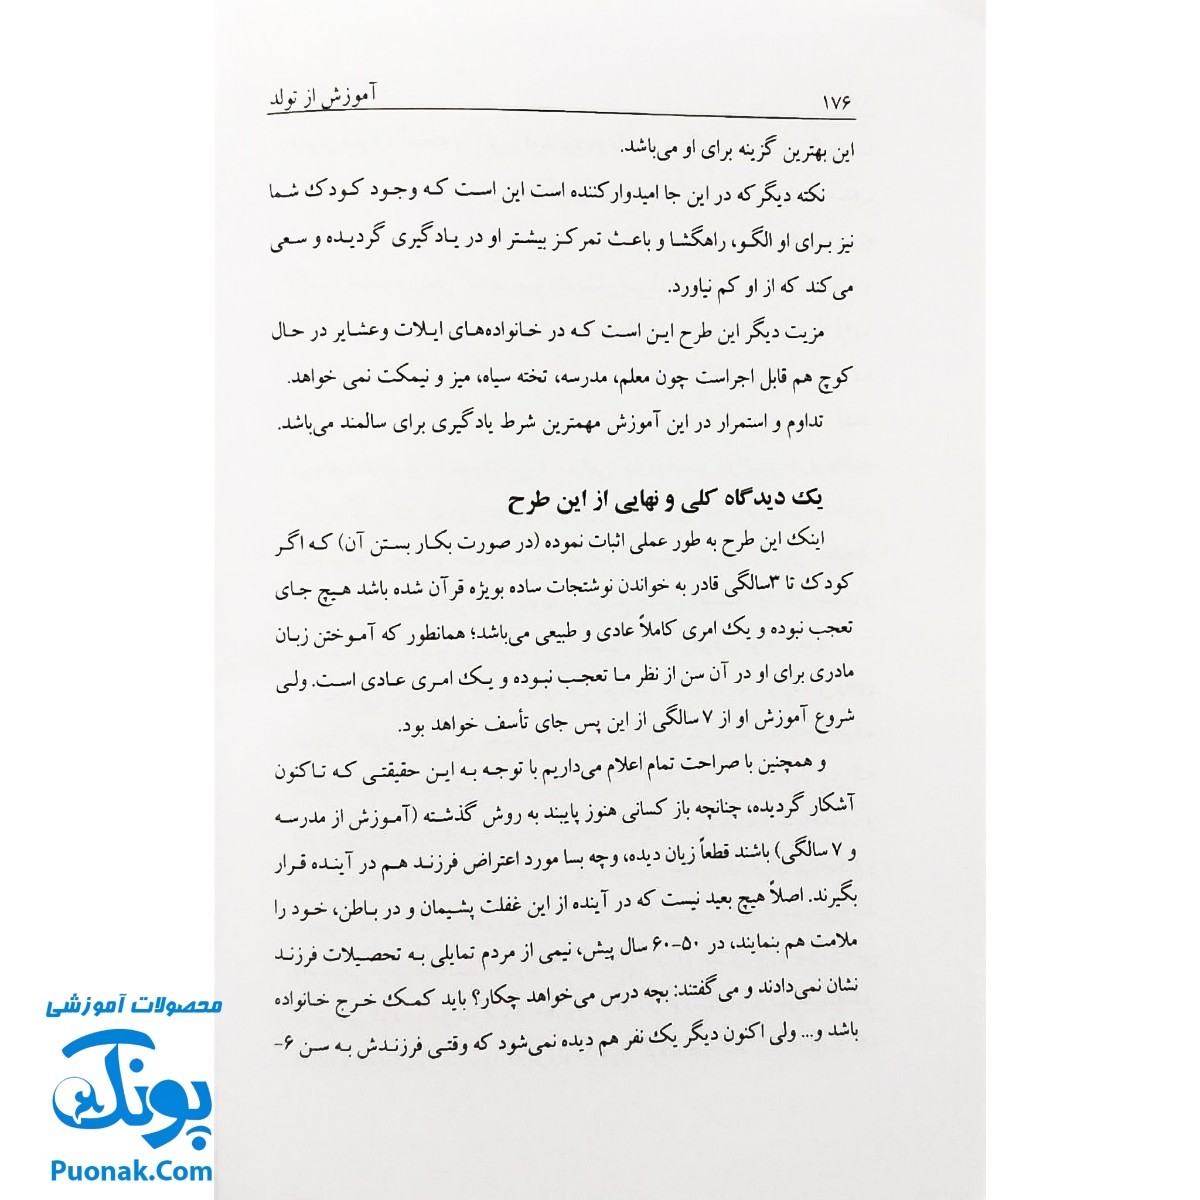 ۱۷۶ آموزش از تولد
این بهترین گزینه برای او می‌باشد.
نکته دیگرکه در این جا امیدوارکننده است این است کـه وجـود کـودک شما
نیز بـرای او الگـو، راهگشـا و باعـث تمرکـز بیشـتر او در یـادگیری گردیـده و سـعی
می‌کند که از او کم نیاورد.
مزیت دیگر این طرح ایـن اسـت کـه در خـانواده‌هـای ایـلات وعشـایر در حـال
کوچ هم قابل اجراست چون معلم، مدرسه، تخته سیاه، میز و نیمکت نمی خواهد.
تداوم و استمرار در این آموزش مهمترین شرط یادگیری برای سالمند می‌باشد.
یک دیدگاه کلی و نهایی از این طرح
اینک این طرح به طور عملی اثبات نموده (در صورت بکار بستن آن) کـه اگـر
کودک تا ۳سالگی قادر به خواندن نوشتجات ساده بویژه قرآن شده باشد هـیچ جـای
تعجب نبوده و یک امری کاملاً عادی و طبیعی می‌باشد؛ همانطور که آموختن زبـان
مادری برای او در آن سن از نظر مـا تعجـب نبـوده و یـک امـری عـادی اسـت. ولـی
شروع آموزش او از ۷ سالگی از این پس جای تأسف خواهد بود.
و همچنین با صراحت تمام اعلام می‌داریم با توجه بـه ایـن حقیقتـی کـه تـاکنون
آشکار گردیده، چنانچه باز کسانی هنوز پایبند به روش گذشته (آمـوزش از مدرسـه
و ۷ سالگی) باشند قطعاً زیان دیده، وچه بسا مورد اعتراض فرزند هـم در آینـده قـرار
بگیرند. اصلاً هیچ بعید نیست که در آینده از این غفلت پشیمان و در باطن، خـود را
ملامت هم بنمایند، در ۵۰-۶۰ سال پیش، نیمی از مردم تمایلی بـه تحصیلات فرزنـد
نشان نمی‌دادند و می‌گفتند: بچه درس می‌خواهد چکار؟ باید کمک خـرج خـانواده
باشد و... ولی اکنون دیگر یک نفر هم دیده نمی‌شود که وقتی فرزندش بـه سـن ۶-
محصولات آموزشی
پونک
Puonak.Com